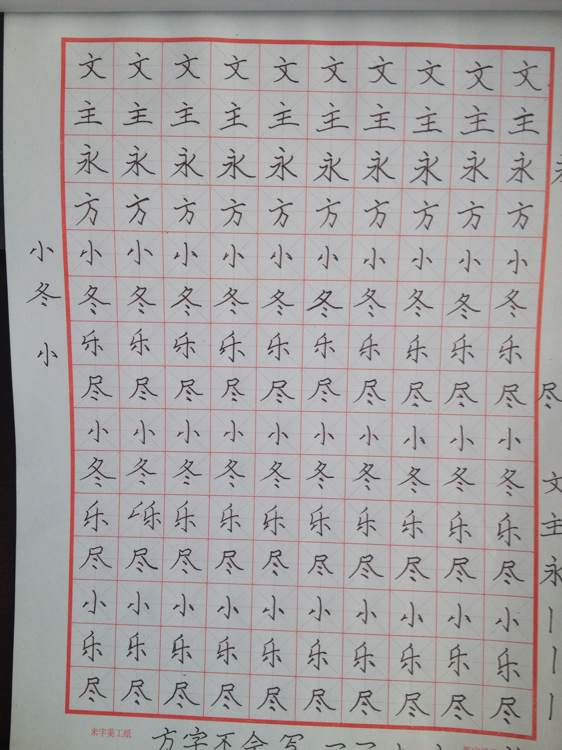 文文文文文文文文文文
主主主主主主主主主主
永永永永永永永永永永
方方方方方方方方方方
小 小小小小小小小小小小
冬 冬冬冬冬冬冬冬冬冬冬
小 乐乐乐乐乐乐乐乐乐乐
尽尽尽尽尽尽尽尽尽尽 尽
小小小小小小小小小小
冬冬冬冬冬冬冬冬冬冬 文
乐乐乐乐乐乐乐乐乐乐 主
尽尽尽尽尽尽尽尽尽尽 永
小小小小小小小小小小
乐乐乐乐乐乐乐乐乐乐
尽尽尽尽尽尽尽尽尽尽
米字美工纸
方字不会写